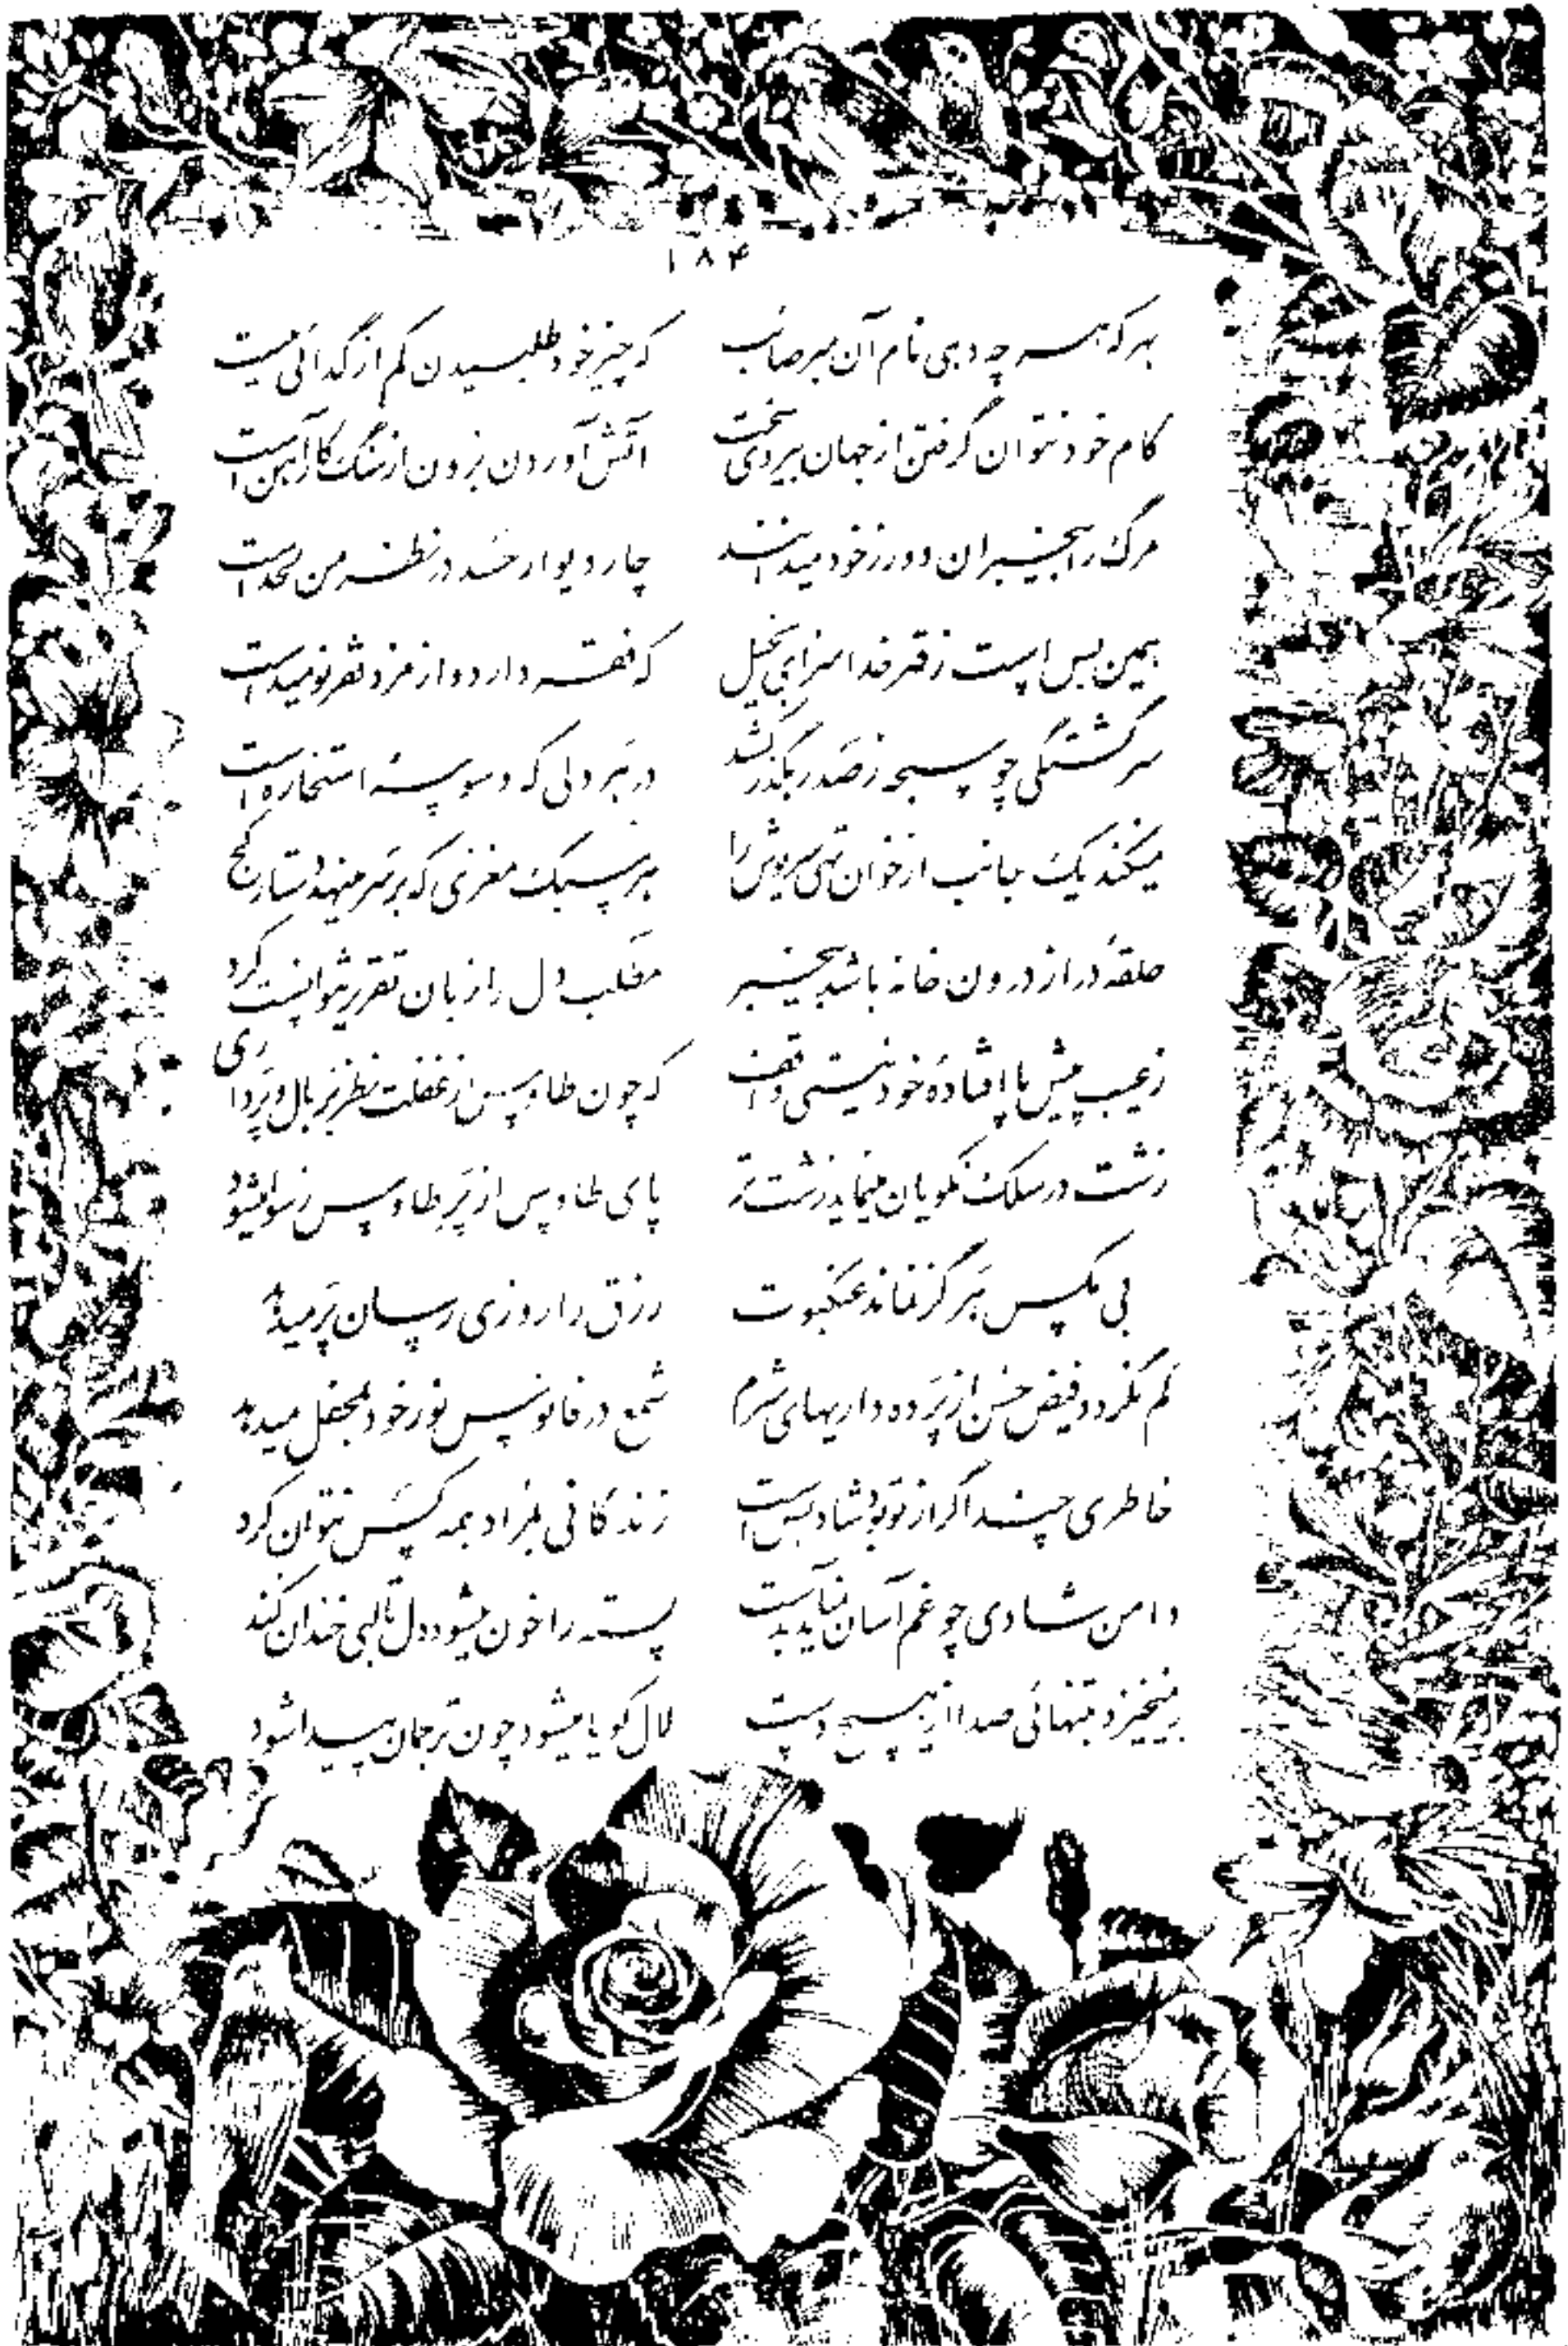 ۱۸۴
بهر که هر چه دهی نام آن مبر صائب    که چیز خود طلبیدن کم از گدائی نیست
کام خود نتوان گرفتن از جهان بیروی سخت    آتش آوردن برون از سنگ کار آهن است
مرگ را بیخبران دور ز خود میدانند    چار دیوار جسد در نظر من لحد است
همین بس است ز قهر خدا سزای بخیل    که فقر دارد و از مزد فقر نومید است
سرگشتگی چو سبحه ز صد رهگذر کشد    در هر دلی که وسوسهٔ استخاره است
میکند یک جانب از خوان تهی سرپوش را    هر سبک مغزی که بر سر مینهد دستار کج
حلقهٔ در از درون خانه باشد بیخبر    مطلب دل را زبان تقریر نتوانست کرد
ز عیب پیش پا افتاده خود نیستی واقف    که چون طاوس از غفلت نظر بر بال و پر داری
زشت در سلک نکویان مینماید زشت تر    پای طاوس از پر طاوس رسوا میشود
بی مگس هرگز نماند عنکبوت    رزق را روزی رسان پر میدهد
کم نگردد فیض حسن از پرده داریهای شرم    شمع در فانوس نور خود بمحفل میدهد
خاطری چند اگر از تو بود شاد بس است    زندگانی بمراد همه کس نتوان کرد
دامن شادی چو غم آسان نمیآید بدست    پسته را خون میشود دل تا لبی خندان کند
برنمیخیزد بتنهائی صدا از هیچ دست    لال گویا میشود چون ترجمان پیدا شود